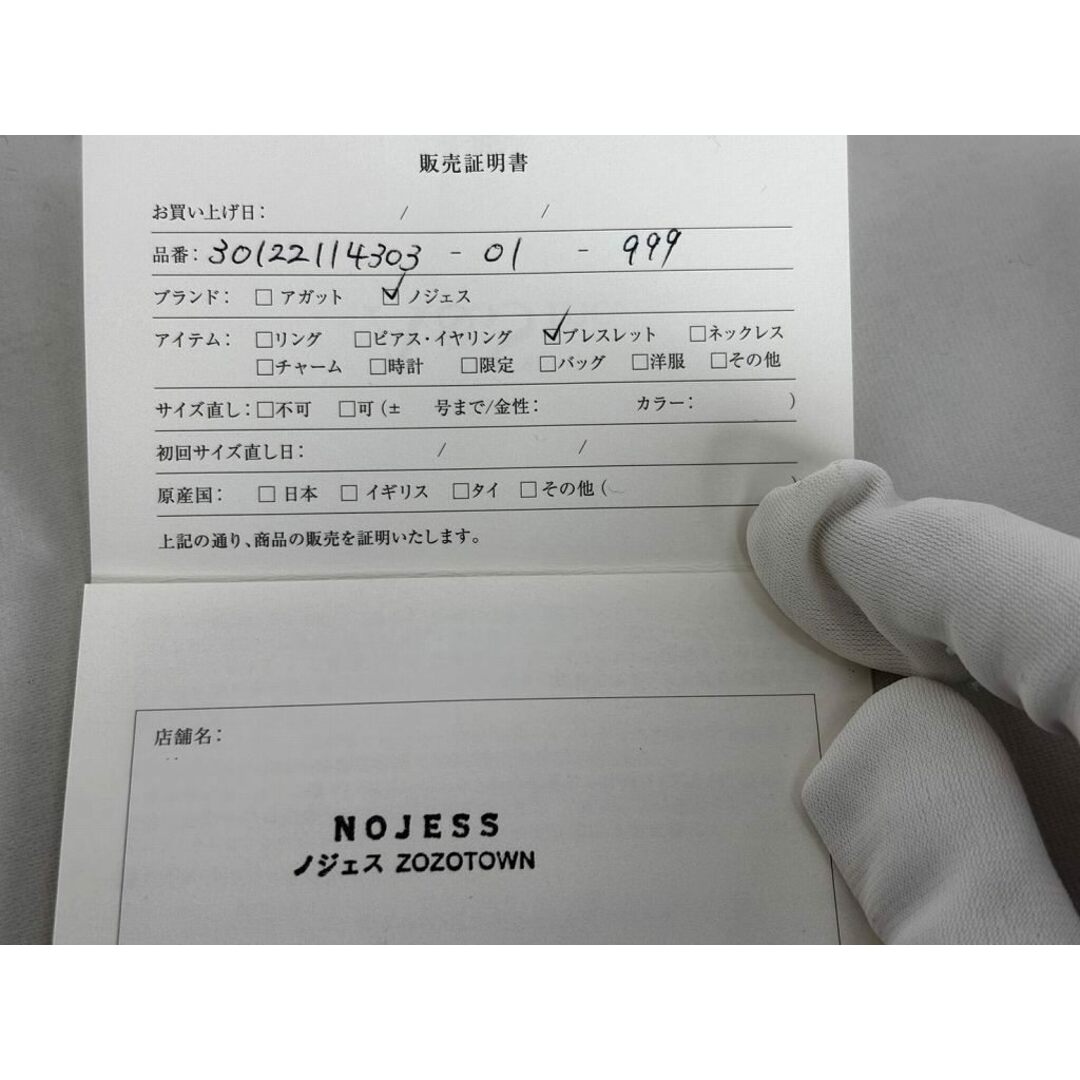 販売証明書
お買い上げ日: / /
品番: 30122114303 - 01 - 999
ブランド: □ アガット ☑ ノジェス
アイテム: □リング □ピアス・イヤリング ☑ブレスレット □ネックレス
□チャーム □時計 □限定 □バッグ □洋服 □その他
サイズ直し: □不可 □可 (± 号まで/金性: カラー: )
初回サイズ直し日: / /
原産国: □ 日本 □ イギリス □タイ □その他 ( )
上記の通り、商品の販売を証明いたします。
店舗名:
NOJESS
ノジェス ZOZOTOWN